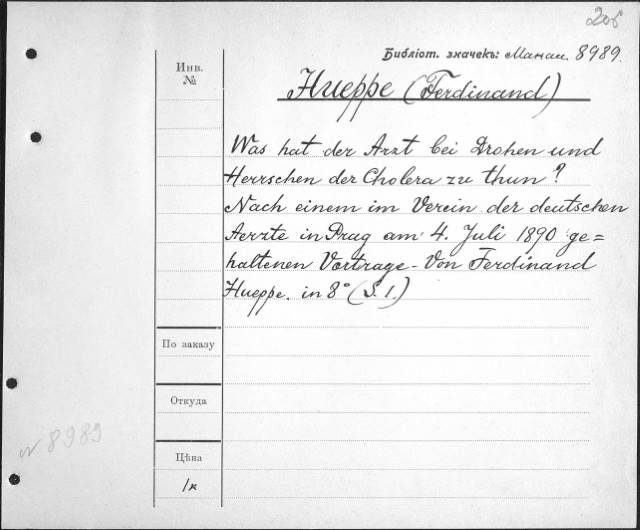 206
Библіот. значекъ: Манаи. 8989.
Инв.
№
Hueppe (Ferdinand)
Was hat der Arzt bei Drohen und
Herrschen der Cholera zu thun?
Nach einem im Verein der deutschen
Aerzte in Prag am 4. Juli 1890 ge=
haltenen Vortrage. Von Ferdinand
Hueppe. in 8° (S. l.)
По заказу
Откуда
Цѣна
1к
№ 8989